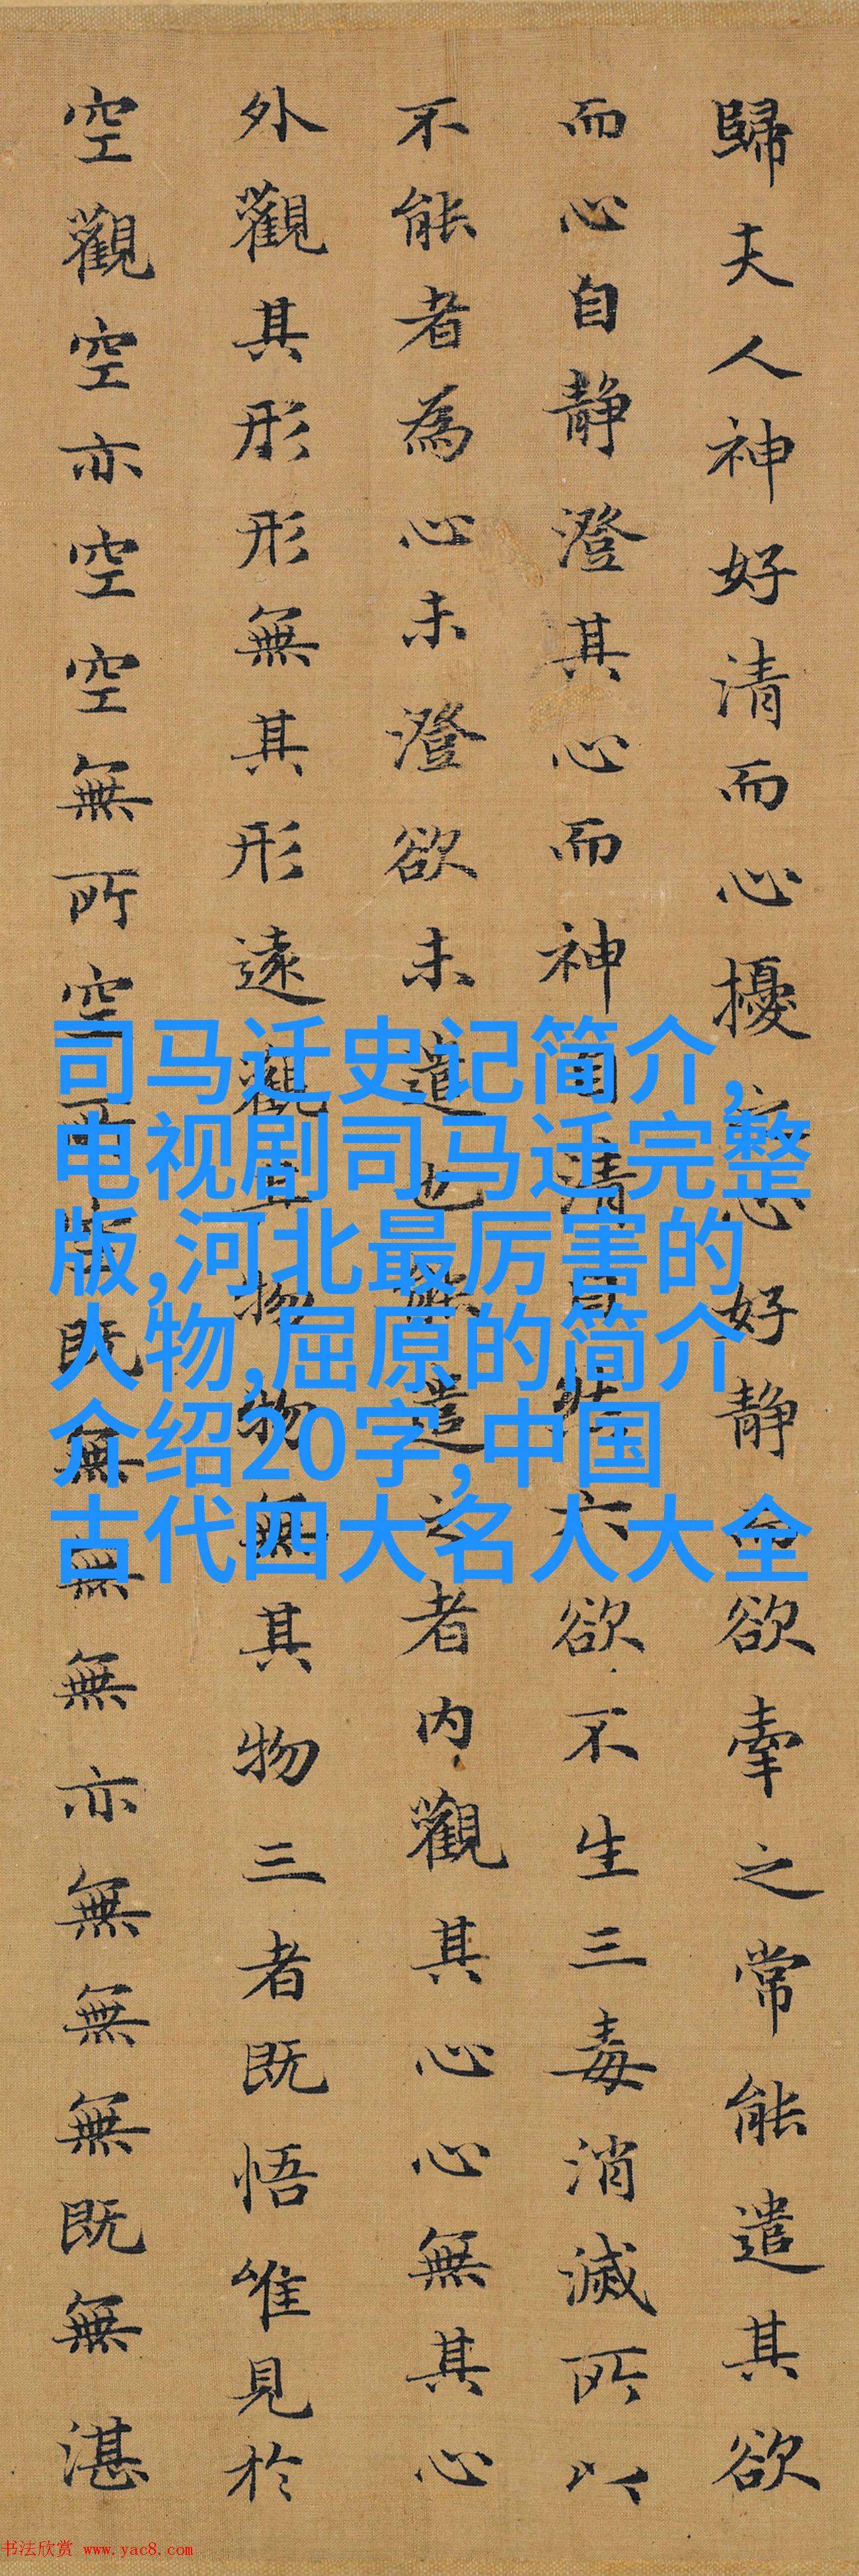 歸夫人神好清而心擾心好静而欲牽之常能遣其欲
而心自静澄其心而神自清自然六欲不生三毒消滅所以
不能者為心未澄欲未遣也能遣之者内觀其心心無其心
外觀其形形無其形遠觀其物物無其物三者既悟唯見於
空觀空亦空空無所空所空既無無無亦無無無既無湛
司马迁史记简介,
电视剧司马迁完整
版,河北最厉害的
人物,屈原的简介
介绍20字,中国
古代四大名人大全
书法欣赏 www.yac8.com